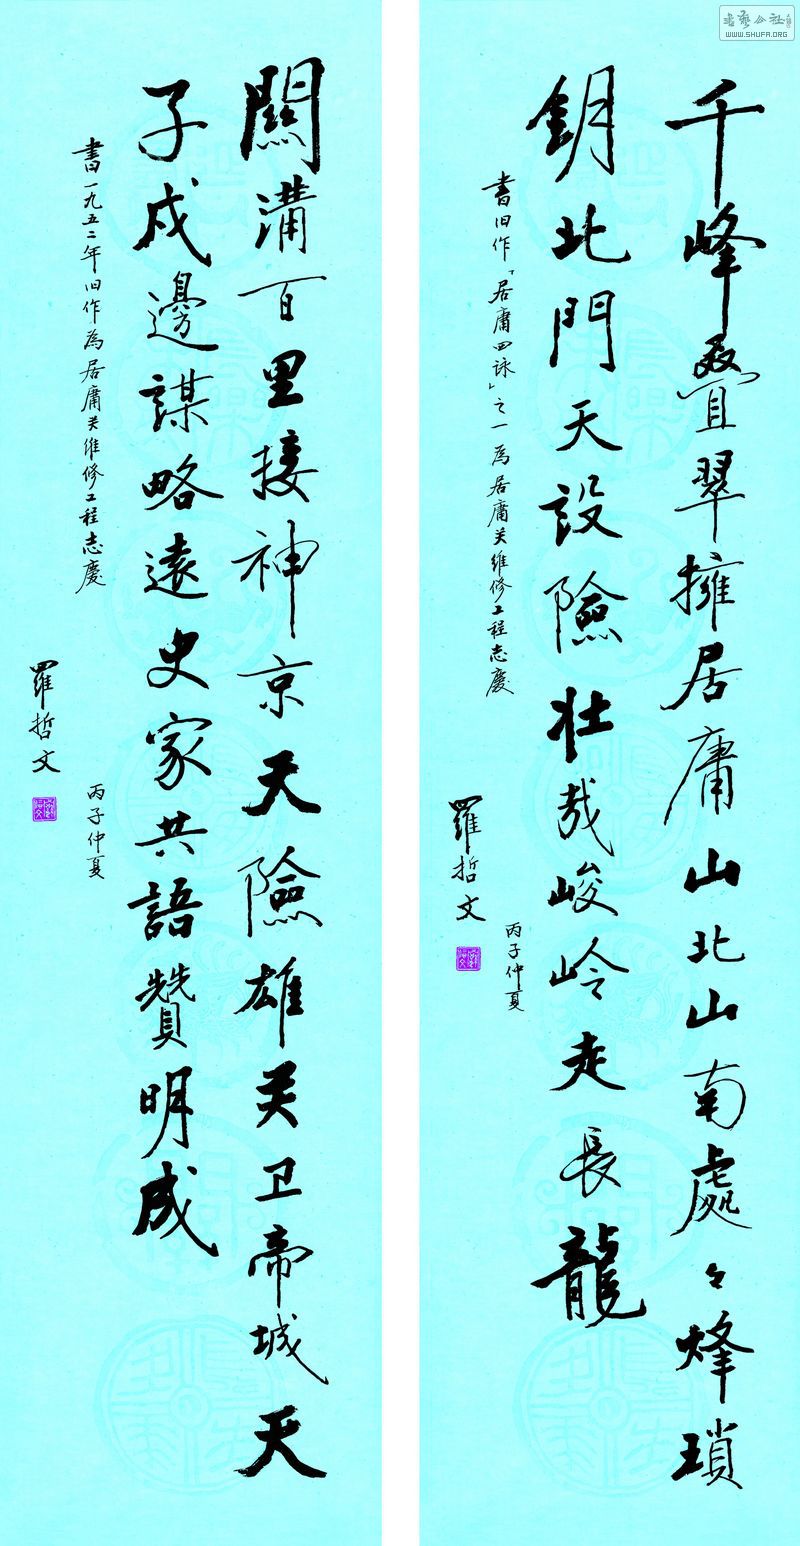 千峰疊翠擁居庸山北山南處々烽瑣
鈅北門天設險壯哉峻岭走長龍
書旧作「居庸四詠」之一為居庸关維修工程志慶
丙子仲夏
羅哲文
關溝百里接神京天險雄关卫帝城天
子戍邊謀略遠史家共語贊明成
書一九五二年旧作為居庸关維修工程志慶
丙子仲夏
羅哲文
WWW.SHUFA.ORG